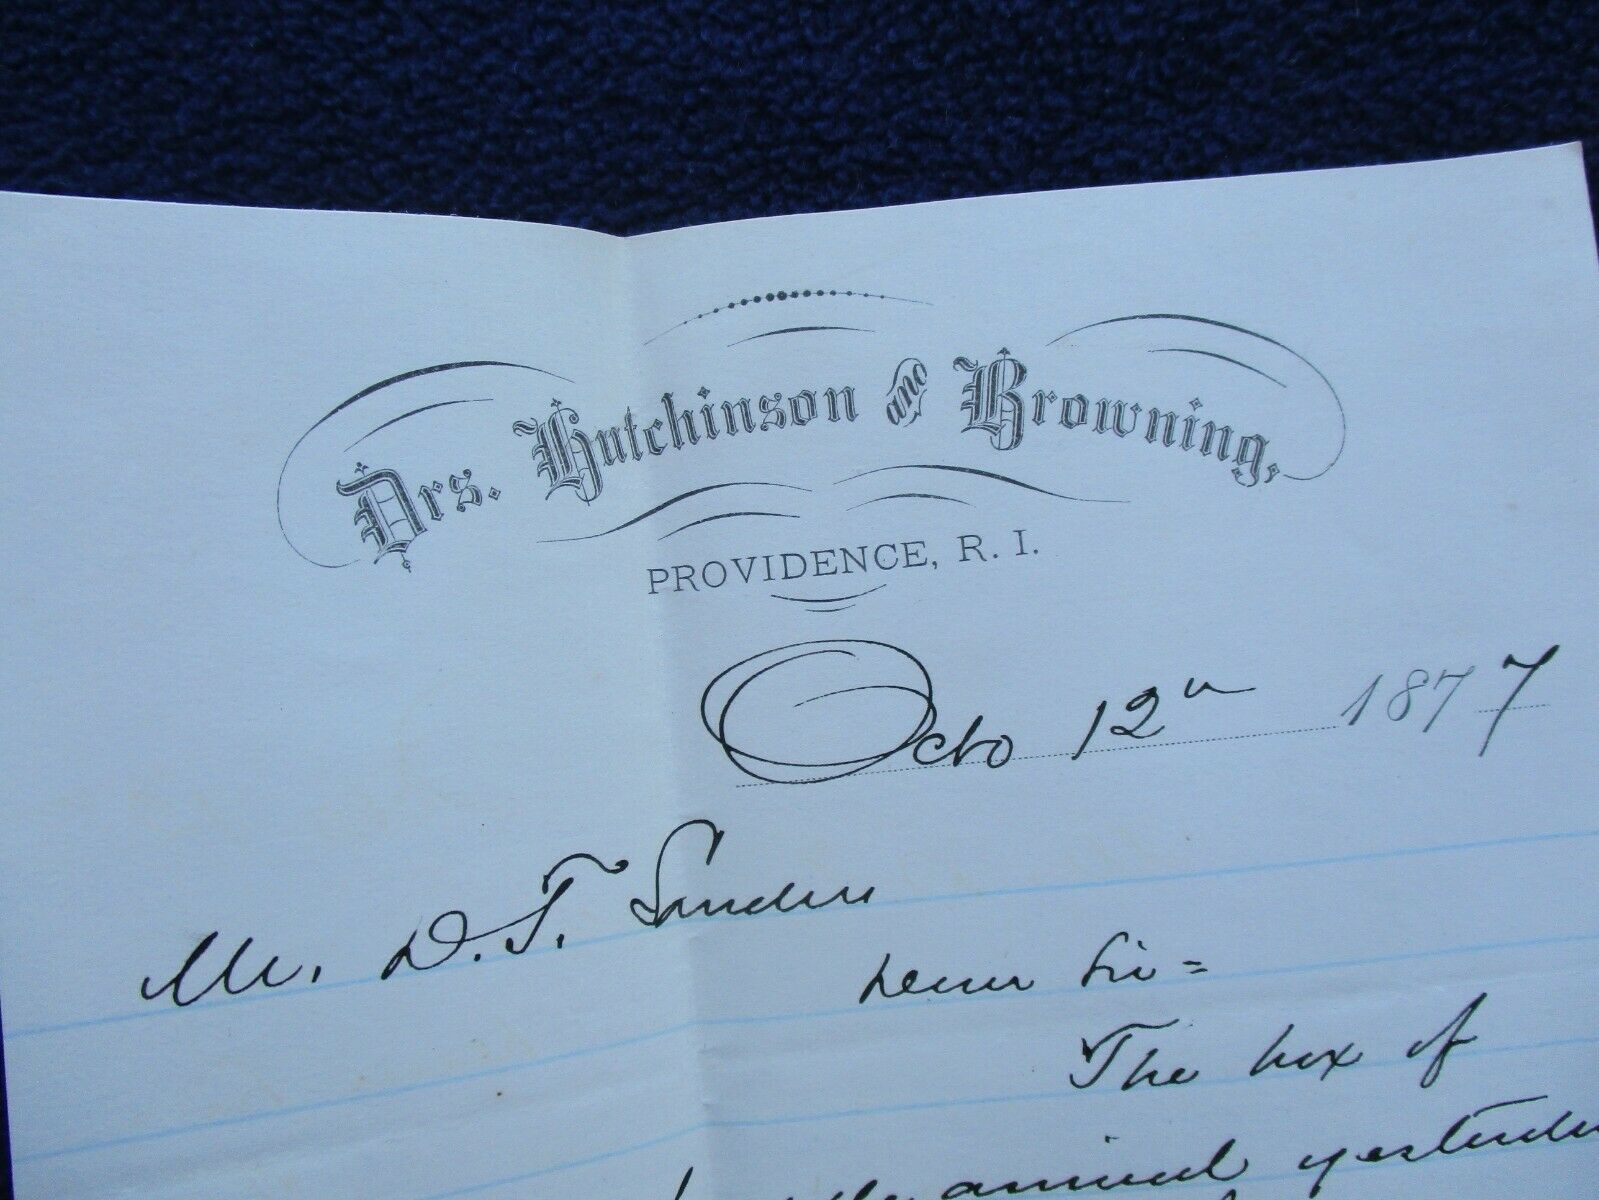 Drs. Hutchinson and Browning,
PROVIDENCE, R. I.
Octo 12th 1877
Mr. D. T. Sanders
Dear Sir =
The box of
arrived yesterday